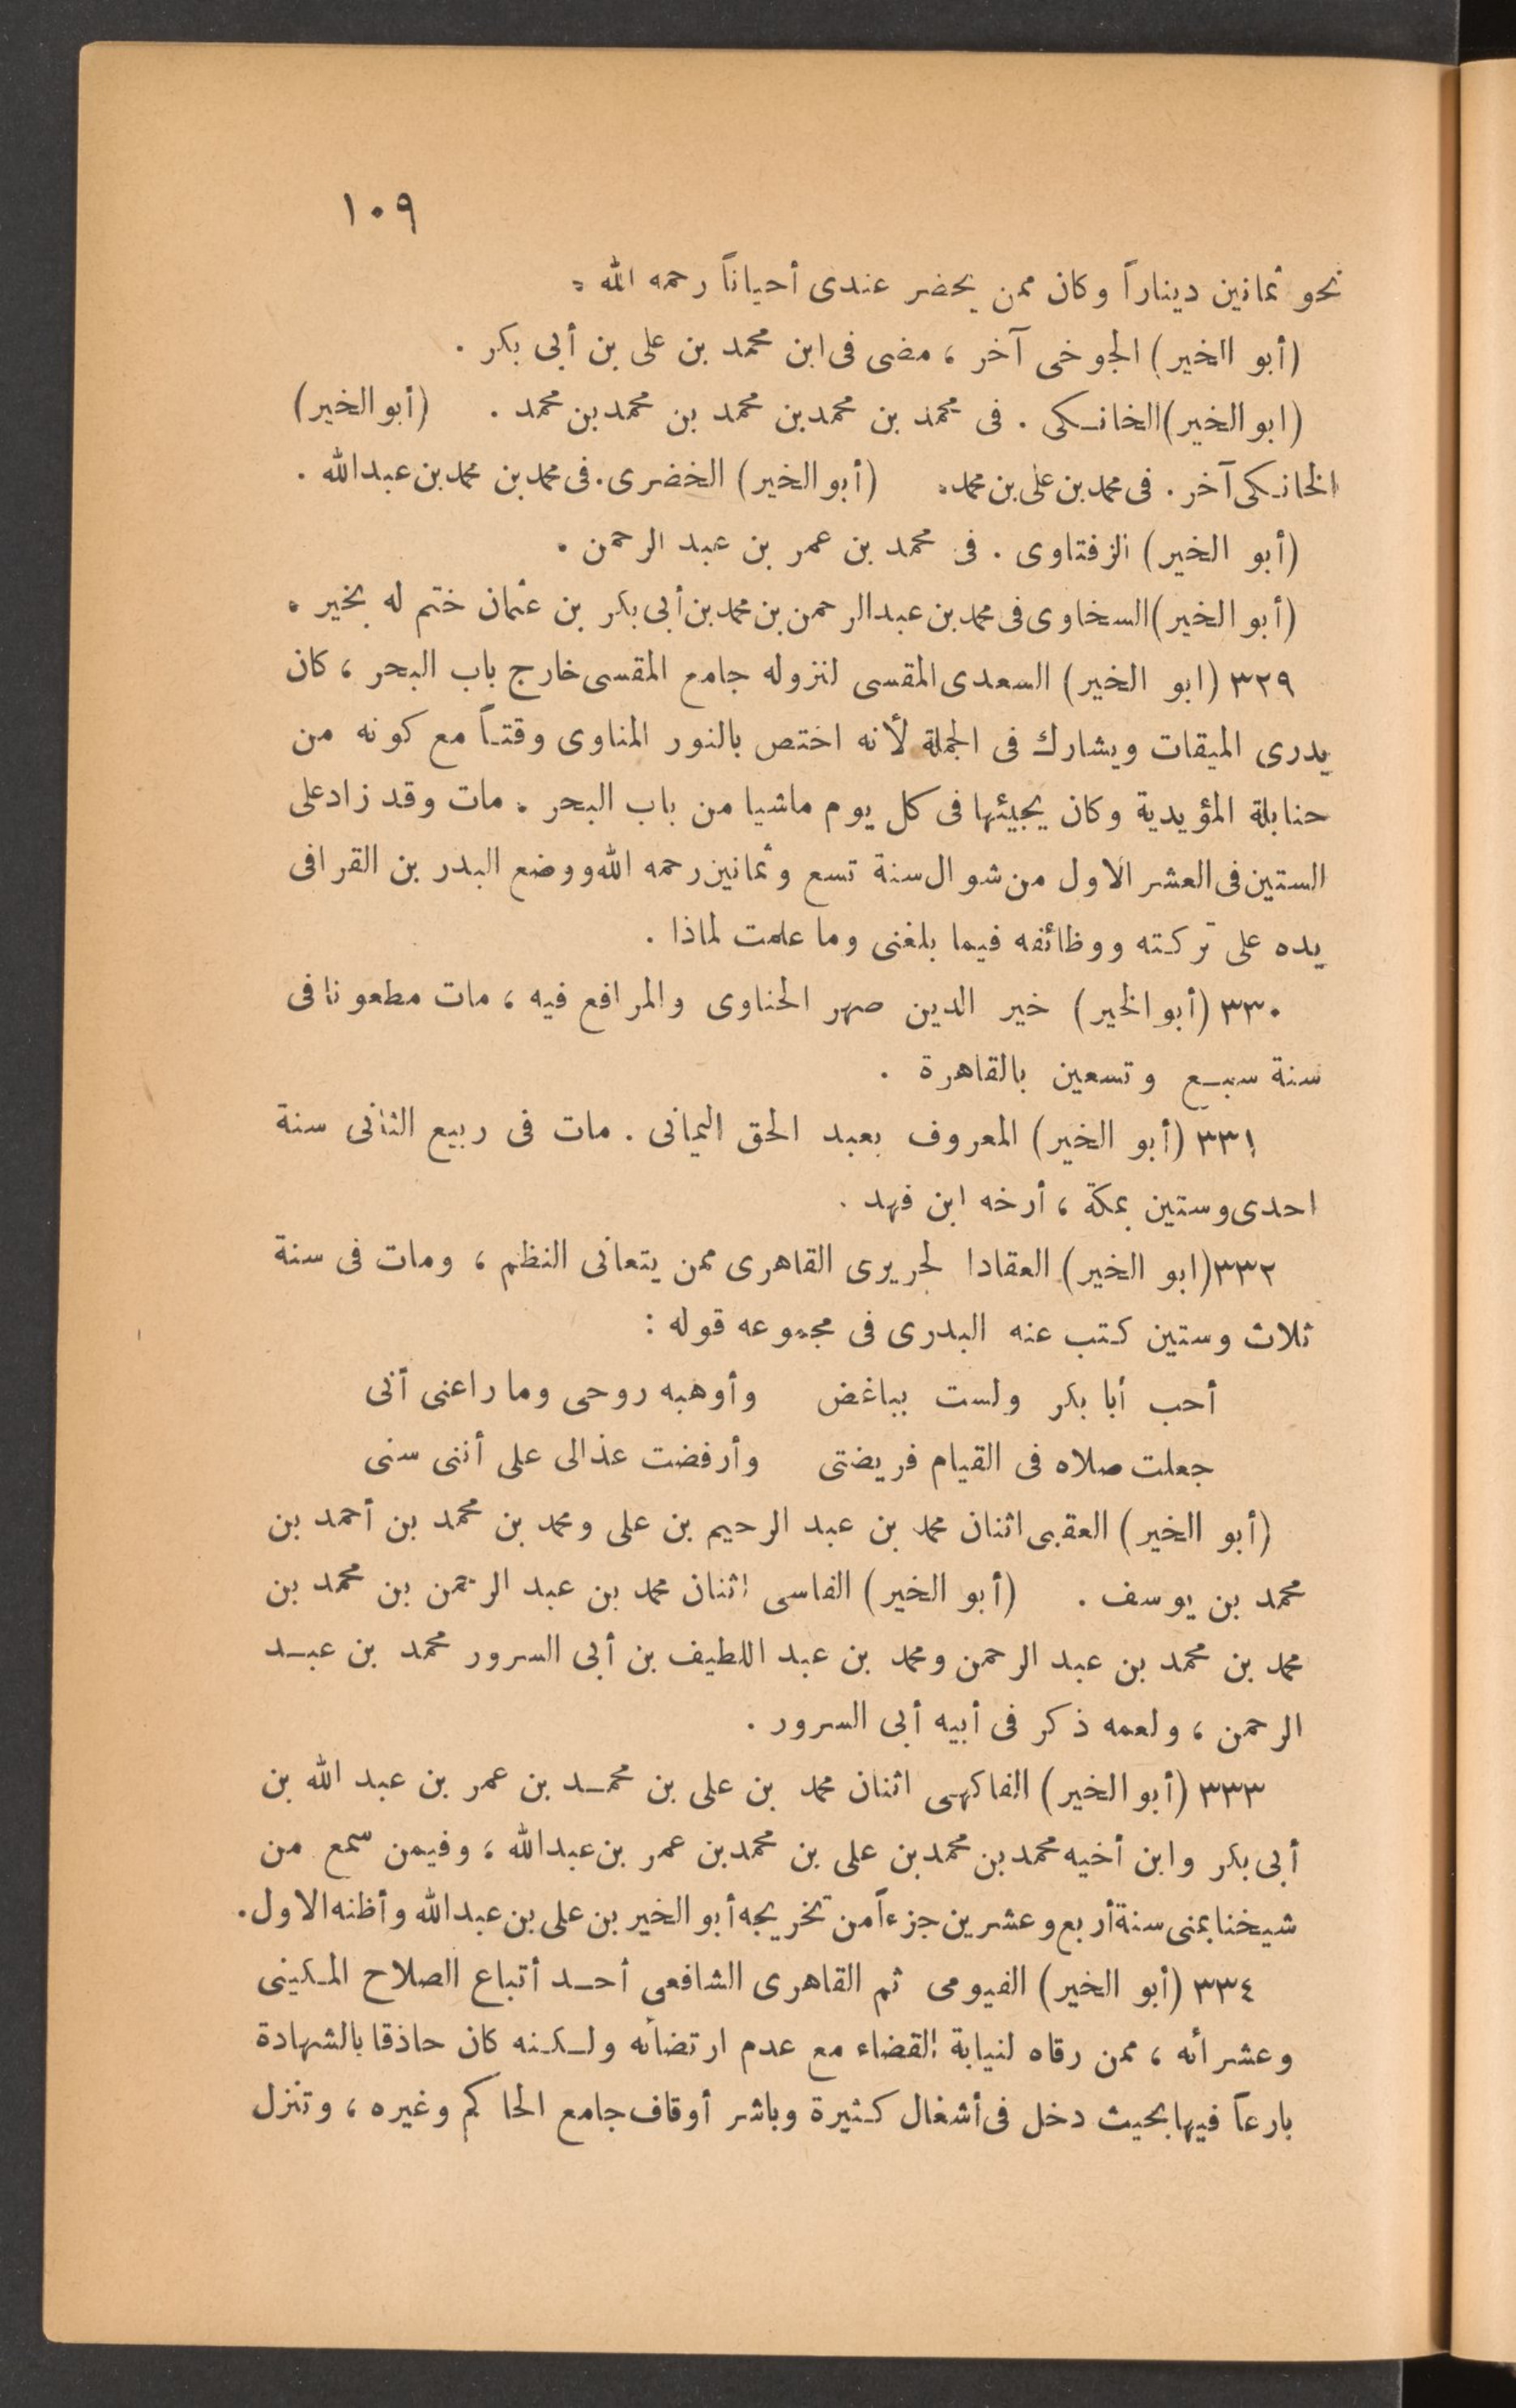 ١٠٩
نحو ثمانين ديناراً وكان ممن يحضر عندى أحياناً رحمه الله .
(أبو الخير) الجوخى آخر ، مضى فى ابن محمد بن على بن أبى بكر .
(ابو الخير) الخانكى . فى محمد بن محمد بن محمد بن محمد بن محمد . (أبو الخير)
الخانكى آخر . فى محمد بن على بن محمد . (أبو الخير) الخضرى . فى محمد بن محمد بن عبد الله .
(أبو الخير) الزفتاوى . فى محمد بن عمر بن عبد الرحمن .
(أبو الخير) السخاوى فى محمد بن عبد الرحمن بن محمد بن أبى بكر بن عثمان ختم له بخير .
٣٢٩ (ابو الخير) السعدى المقسى لنزوله جامع المقسى خارج باب البحر ، كان
يدرى الميقات ويشارك فى الجملة لأنه اختص بالنور المناوى وقتاً مع كونه من
حنابلة المؤيدية وكان يجيئها فى كل يوم ماشيا من باب البحر . مات وقد زاد على
الستين فى العشر الاول من شوال سنة تسع وثمانين رحمه الله ووضع البدر بن القرافى
يده على تركته ووظائفه فيما بلغنى وما علمت لماذا .
٣٣٠ (أبو الخير) خير الدين صهر الحناوى والمرافع فيه ، مات مطعونا فى
سنة سبع وتسعين بالقاهرة .
٣٣١ (أبو الخير) المعروف بعبد الحق اليمانى . مات فى ربيع الثانى سنة
احدى وستين بمكة ، أرخه ابن فهد .
٣٣٢ (ابو الخير) العقادا لحريرى القاهرى ممن يتعانى النظم ، ومات فى سنة
ثلاث وستين كتب عنه البدرى فى مجموعه قوله :
أحب أبا بكر ولست بباغض وأوهبه روحى وما راعنى أنى
جعلت صلاه فى القيام فريضتى وأرفضت عذالى على أننى سنى
(أبو الخير) العقبى اثنان محمد بن عبد الرحيم بن على ومحمد بن محمد بن أحمد بن
محمد بن يوسف . (أبو الخير) الفاسى اثنان محمد بن عبد الرحمن بن محمد بن
محمد بن محمد بن عبد الرحمن ومحمد بن عبد اللطيف بن أبى السرور محمد بن عبد
الرحمن ، ولعمه ذكر فى أبيه أبى السرور .
٣٣٣ (أبو الخير) الفاكهى اثنان محمد بن على بن محمد بن عمر بن عبد الله بن
أبى بكر وابن أخيه محمد بن محمد بن على بن محمد بن عمر بن عبد الله ، وفيمن سمع من
شيخنا بمنى سنة أربع وعشرين جزءاً من تخريجه أبو الخير بن على بن عبد الله وأظنه الاول .
٣٣٤ (أبو الخير) الفيومى ثم القاهرى الشافعى أحد أتباع الصلاح المكينى
وعشرائه ، ممن رقاه لنيابة القضاء مع عدم ارتضائه ولكنه كان حاذقا بالشهادة
بارعاً فيها بحيث دخل فى أشغال كثيرة وباشر أوقاف جامع الحاكم وغيره ، وتنزل